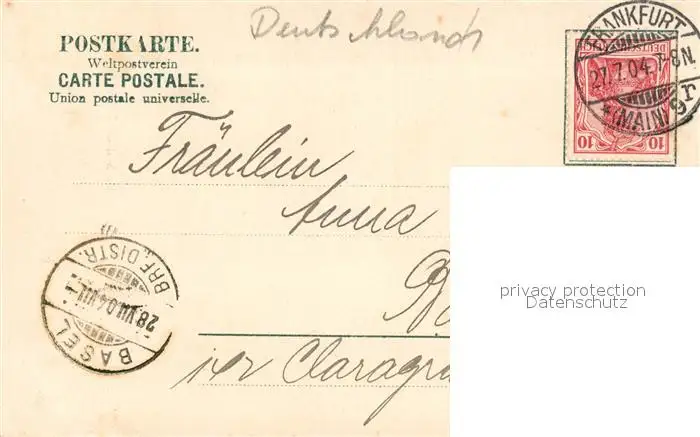 Deutschland
POSTKARTE.
Weltpostverein
CARTE POSTALE.
Union postale universelle.
FRANKFURT
27.7.04. 7-8N.
* (MAIN) 9r
DEUTSCHES REICH
10 10
Fräulein
Anna
BRF. DISTR.
28.VII.04.VII
BASEL
Claragra
privacy protection
Datenschutz